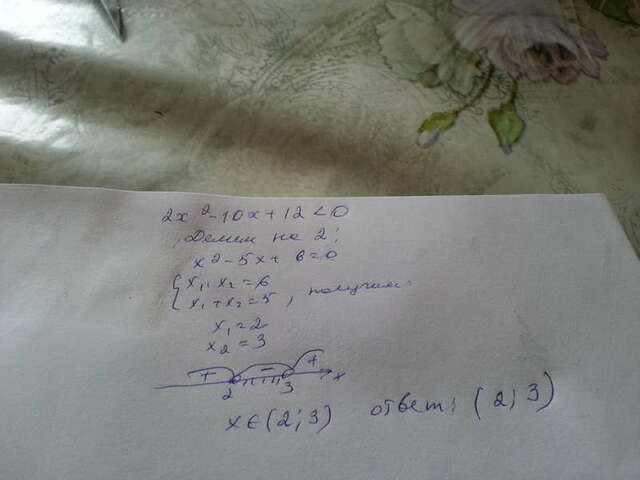 2x²-10x+12<0
Делим на 2:
x²-5x+6=0
{x₁·x₂=6
x₁+x₂=5, получим:
x₁=2
x₂=3
+ - +
2 3 x
x∈(2;3) ответ: (2;3)